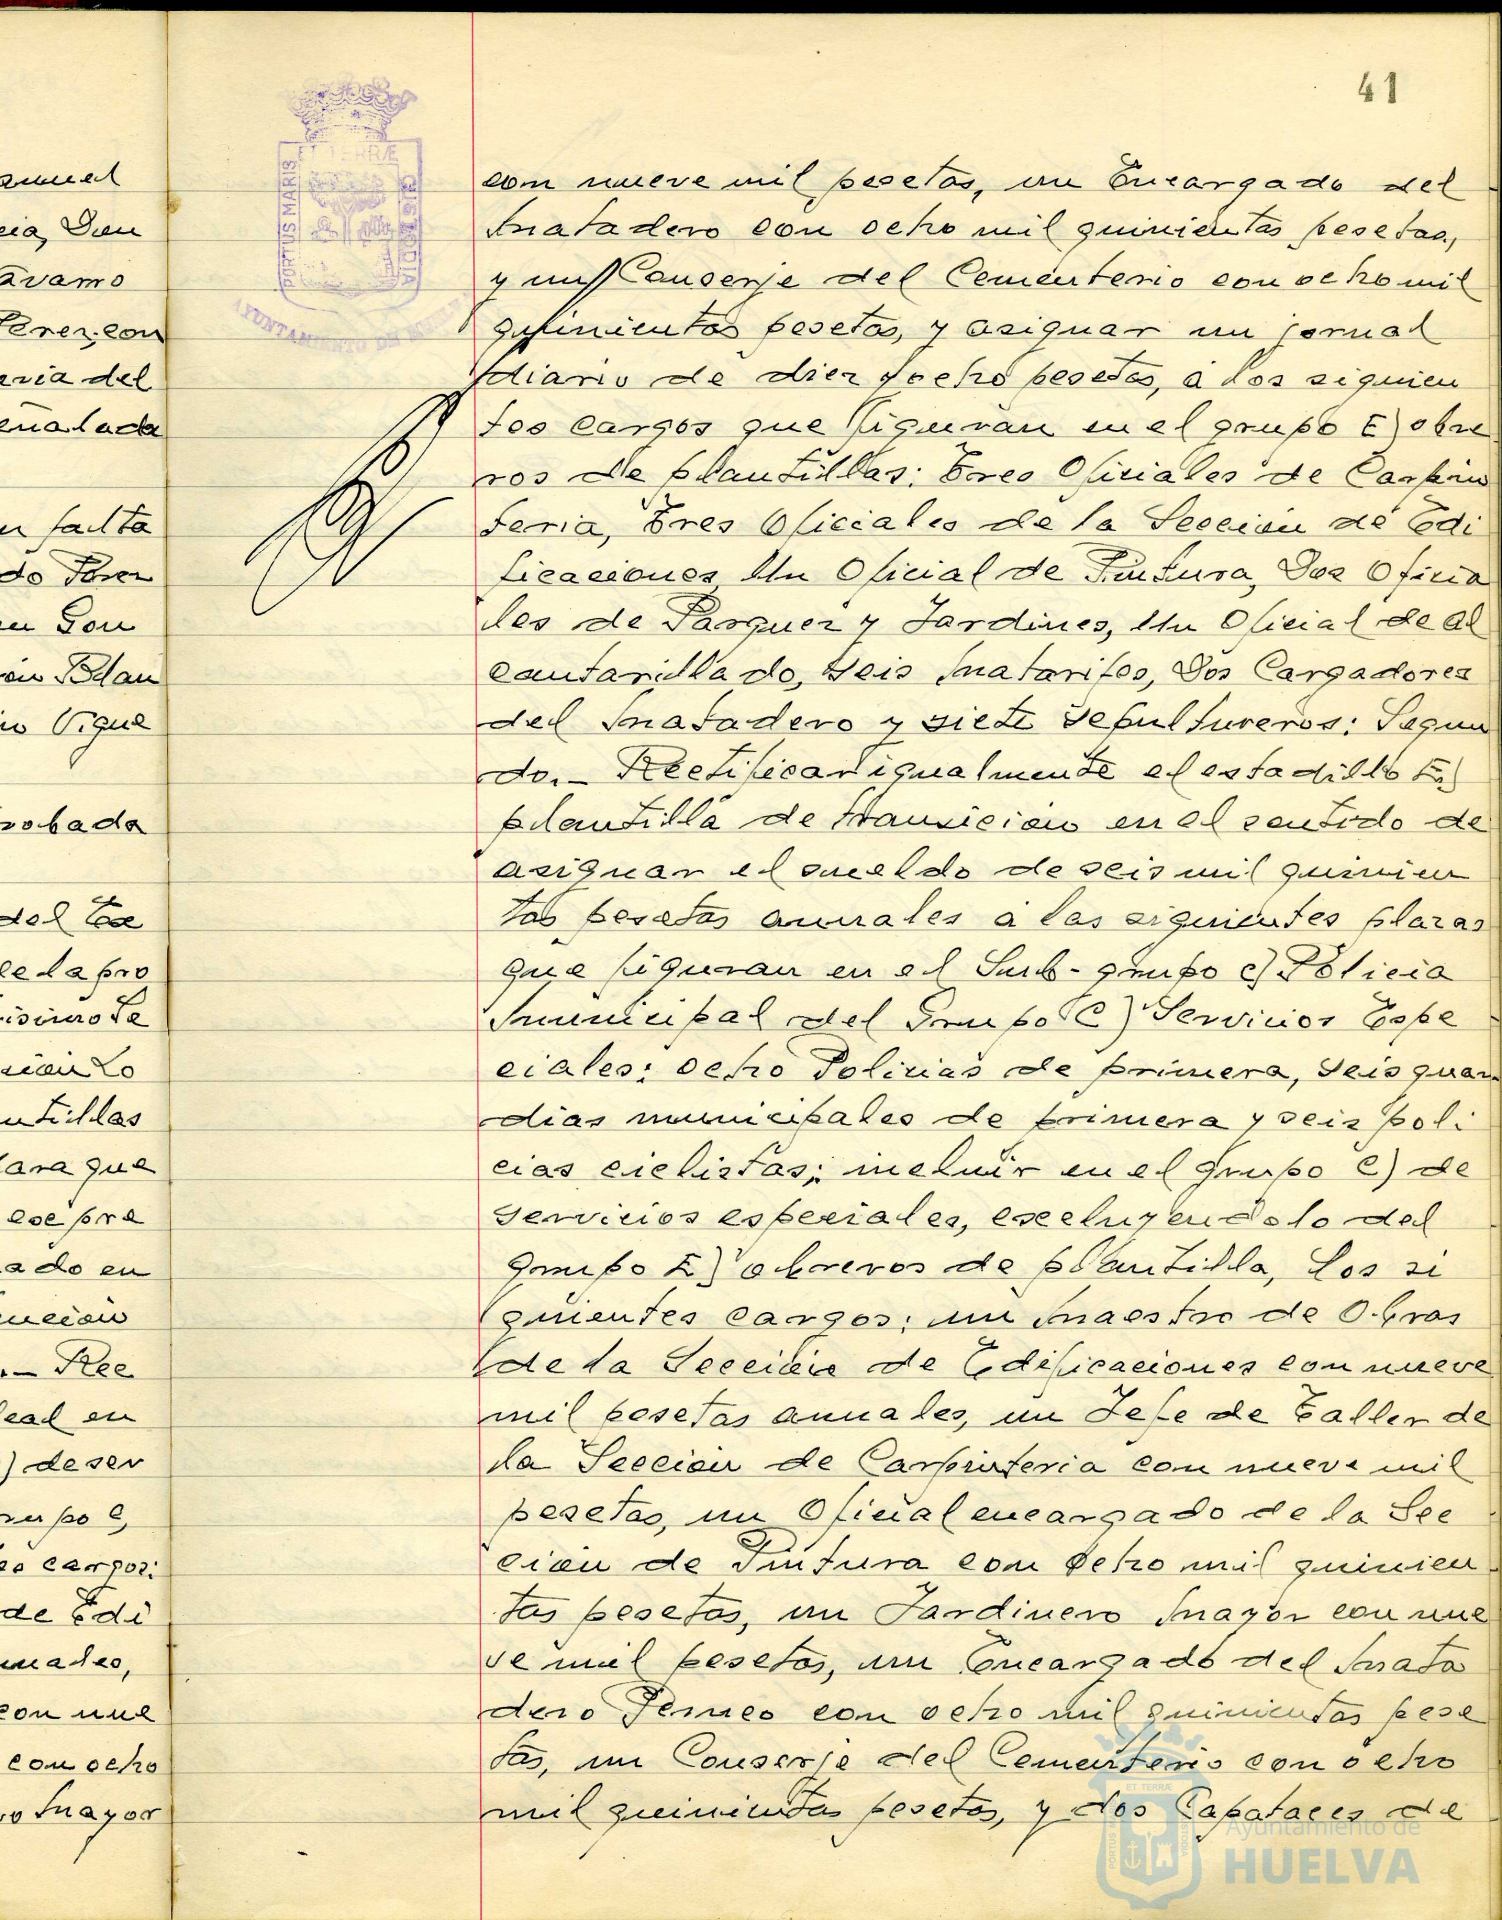 41
PORTUS MARIS
ET TERRÆ
CUSTODIA
AYUNTAMIENTO DE
con nueve mil pesetas, un Encargado del
Matadero con ocho mil quinientas pesetas,
y un Conserje del Cementerio con ocho mil
quinientas pesetas, y asignar un jornal
diario de diez y ocho pesetas, a los siguien
tes cargos que figuran en el grupo E) obre
ros de plantillas: Tres Oficiales de Carpin
teria, Tres Oficiales de la Sección de Edi
ficaciones, Un Oficial de Pintura, Dos Oficia
les de Parques y Jardines, Un Oficial de Al
cantarillado, Seis Matarifes, Dos Cargadores
del Matadero y siete Sepultureros: Segun
do.- Rectificar igualmente el estadillo E)
plantilla de transición en el sentido de
asignar el sueldo de seis mil quinien
tas pesetas anuales a las siguientes plazas
que figuran en el Sub-grupo c) Policia
Municipal del Grupo C) Servicios Espe
ciales: ocho Policias de primera, seis guar
dias municipales de primera y seis poli
cias ciclistas; incluir en el grupo C) de
servicios especiales, escluyendolo del
grupo E) obreros de plantilla, los si
guientes cargos: un Maestro de Obras
de la Sección de Edificaciones con nueve
mil pesetas anuales, un Jefe de Taller de
la Sección de Carpinteria con nueve mil
pesetas, un Oficial encargado de la Sec
ción de Pintura con ocho mil quinien
tas pesetas, un Jardinero Mayor con nue
ve mil pesetas, un Encargado del Mata
dero con ocho mil quinientas pese
tas, un Conserje del Cementerio con ocho
mil quinientas pesetas, y dos Capataces de
Ayuntamiento de
HUELVA